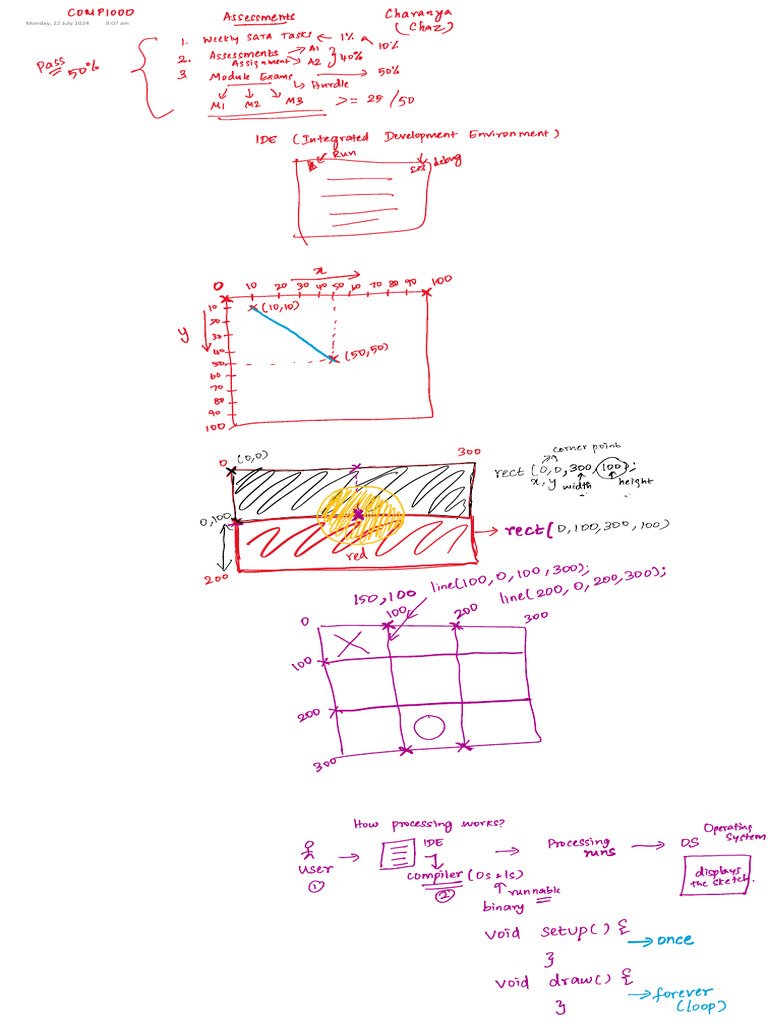 COMP1000
Monday, 22 July 2024 9:07 am
Assessments
Charanya
(Chaz)
Pass
50%
1. Weekly SATA Tasks 1% 10%
2. Assessments A1
Assignment A2 40%
3 Module Exams 50%
Hurdle
M1 M2 M3 >= 25/50
IDE (Integrated Development Environment)
Run
debug
x
0 10 20 30 40 50 60 70 80 90 100
y
10
20
30
40
50
60
70
80
90
100
(10,10)
(50,50)
0 (0,0) 300
0,100
200
red
corner point
rect (0,0,300,100);
x,y width height
rect(0,100,300,100)
150,100
line(100,0,100,300);
line(200,0,200,300);
0 100 200 300
100
200
300
X
How processing works?
User
1
IDE
compiler (0s & 1s)
2
runnable
binary
Processing
runs
OS
Operating
System
displays
the sketch.
void setup() {
once
}
void draw() {
forever
(loop)
}